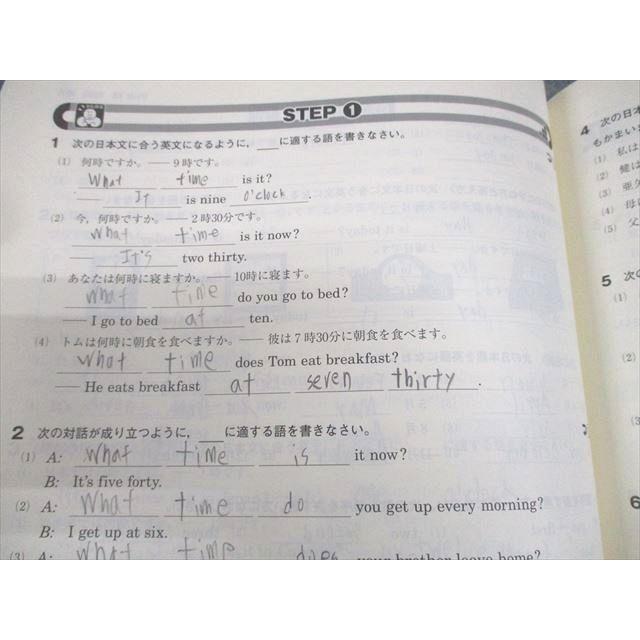 STEP 1
1 次の日本文に合う英文になるように，___に適する語を書きなさい。
(1) 何時ですか。― 9時です。
What time is it?
― It is nine o'clock.
(2) 今，何時ですか。― 2時30分です。
What time is it now?
― It's two thirty.
(3) あなたは何時に寝ますか。― 10時に寝ます。
What time do you go to bed?
― I go to bed at ten.
(4) トムは何時に朝食を食べますか。― 彼は7時30分に朝食を食べます。
What time does Tom eat breakfast?
― He eats breakfast at seven thirty.
2 次の対話が成り立つように，___に適する語を書きなさい。
(1) A: What time is it now?
B: It's five forty.
(2) A: What time do you get up every morning?
B: I get up at six.
(3) A: What time does your brother leave home?
4 次の日本
もかまい
(1) 私は
(2) 健は
(3) 亜
(4) 母は
(5) 父
5 次の
(1)
(2)
(3)
6